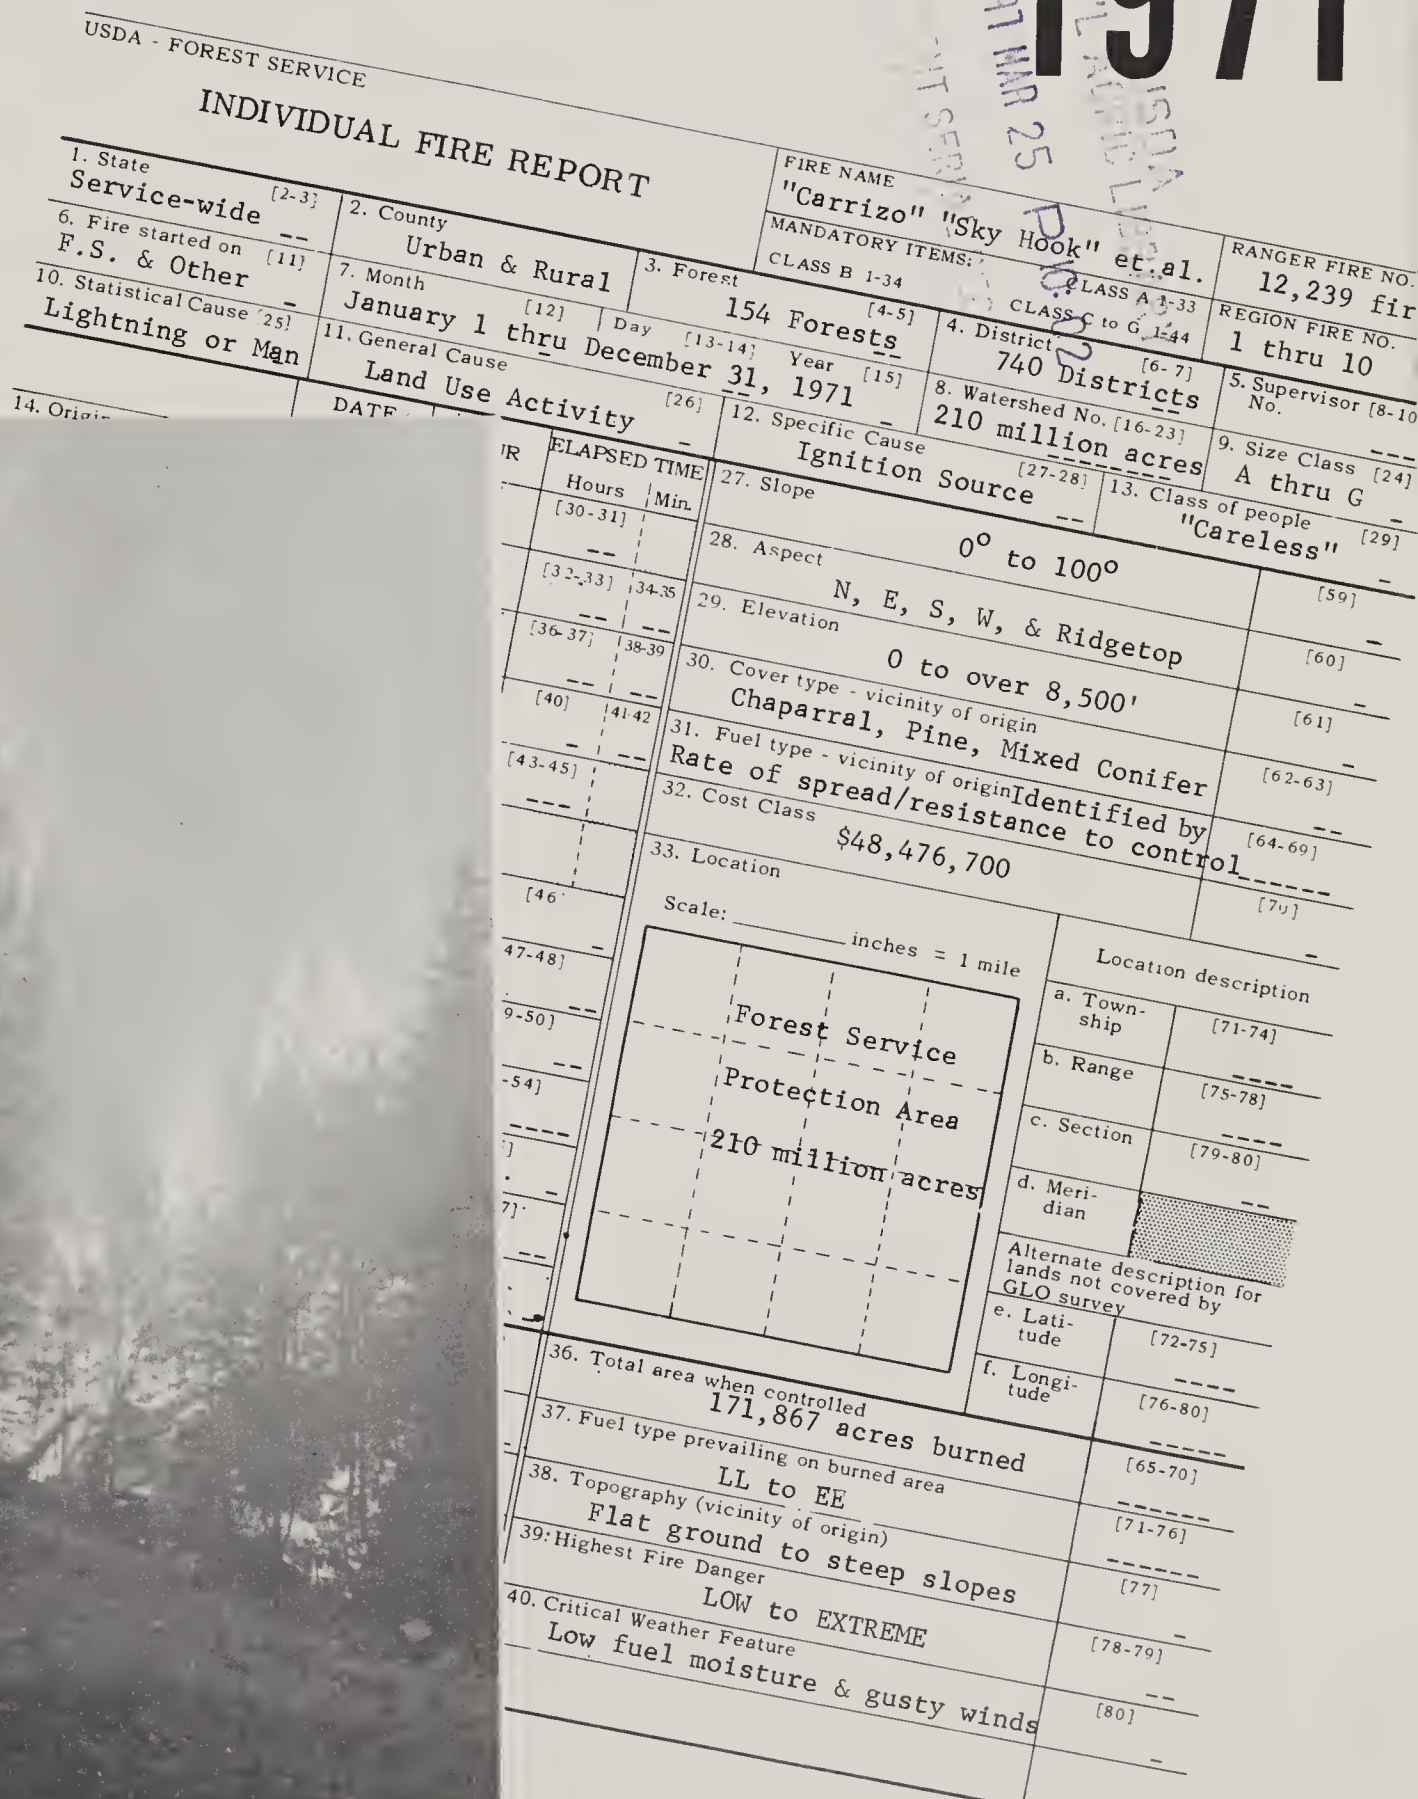 1971
USDA - FOREST SERVICE
INDIVIDUAL FIRE REPORT
MAR 25
FIRE NAME
"Carrizo" "Sky Hook" et.al.
RANGER FIRE NO.
12,239 fir
MANDATORY ITEMS:
CLASS A 1-33
CLASS B 1-34
CLASS C to G 1-44
REGION FIRE NO.
1 thru 10
1. State [2-3]
Service-wide --
2. County
Urban & Rural
3. Forest [4-5]
154 Forests
4. District [6-7]
740 Districts
5. Supervisor No. [8-10
6. Fire started on [11]
F.S. & Other -
7. Month [12] Day [13-14] Year [15]
January 1 thru December 31, 1971
8. Watershed No. [16-23]
210 million acres
9. Size Class [24]
A thru G
10. Statistical Cause [25]
Lightning or Man
11. General Cause [26]
Land Use Activity
12. Specific Cause [27-28]
Ignition Source
13. Class of people [29]
"Careless"
14. Origin
DATE
UR
ELAPSED TIME
Hours Min.
[30-31]
[32-33] 34-35
[36-37] 38-39
[40] 41-42
[43-45]
[46
47-48]
9-50]
-54]
7]
27. Slope [59]
0° to 100°
28. Aspect [60]
N, E, S, W, & Ridgetop
29. Elevation [61]
0 to over 8,500'
30. Cover type - vicinity of origin [62-63]
Chaparral, Pine, Mixed Conifer
31. Fuel type - vicinity of origin Identified by [64-69]
Rate of spread/resistance to control
32. Cost Class [70]
$48,476,700
33. Location
Scale: ______ inches = 1 mile
Forest Service
Protection Area
210 million acres
Location description
a. Town-
ship
[71-74]
b. Range [75-78]
c. Section [79-80]
d. Meri-
dian
Alternate description for
lands not covered by
GLO survey
e. Lati-
tude
[72-75]
f. Longi-
tude
[76-80]
36. Total area when controlled [65-70]
171,867 acres burned
37. Fuel type prevailing on burned area [71-76]
LL to EE
38. Topography (vicinity of origin) [77]
Flat ground to steep slopes
39. Highest Fire Danger [78-79]
LOW to EXTREME
40. Critical Weather Feature [80]
Low fuel moisture & gusty winds